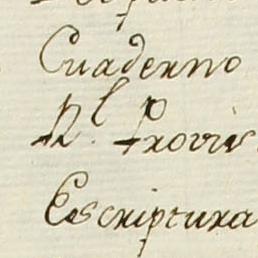 Cuaderno
Rl. Provis
Escriptura